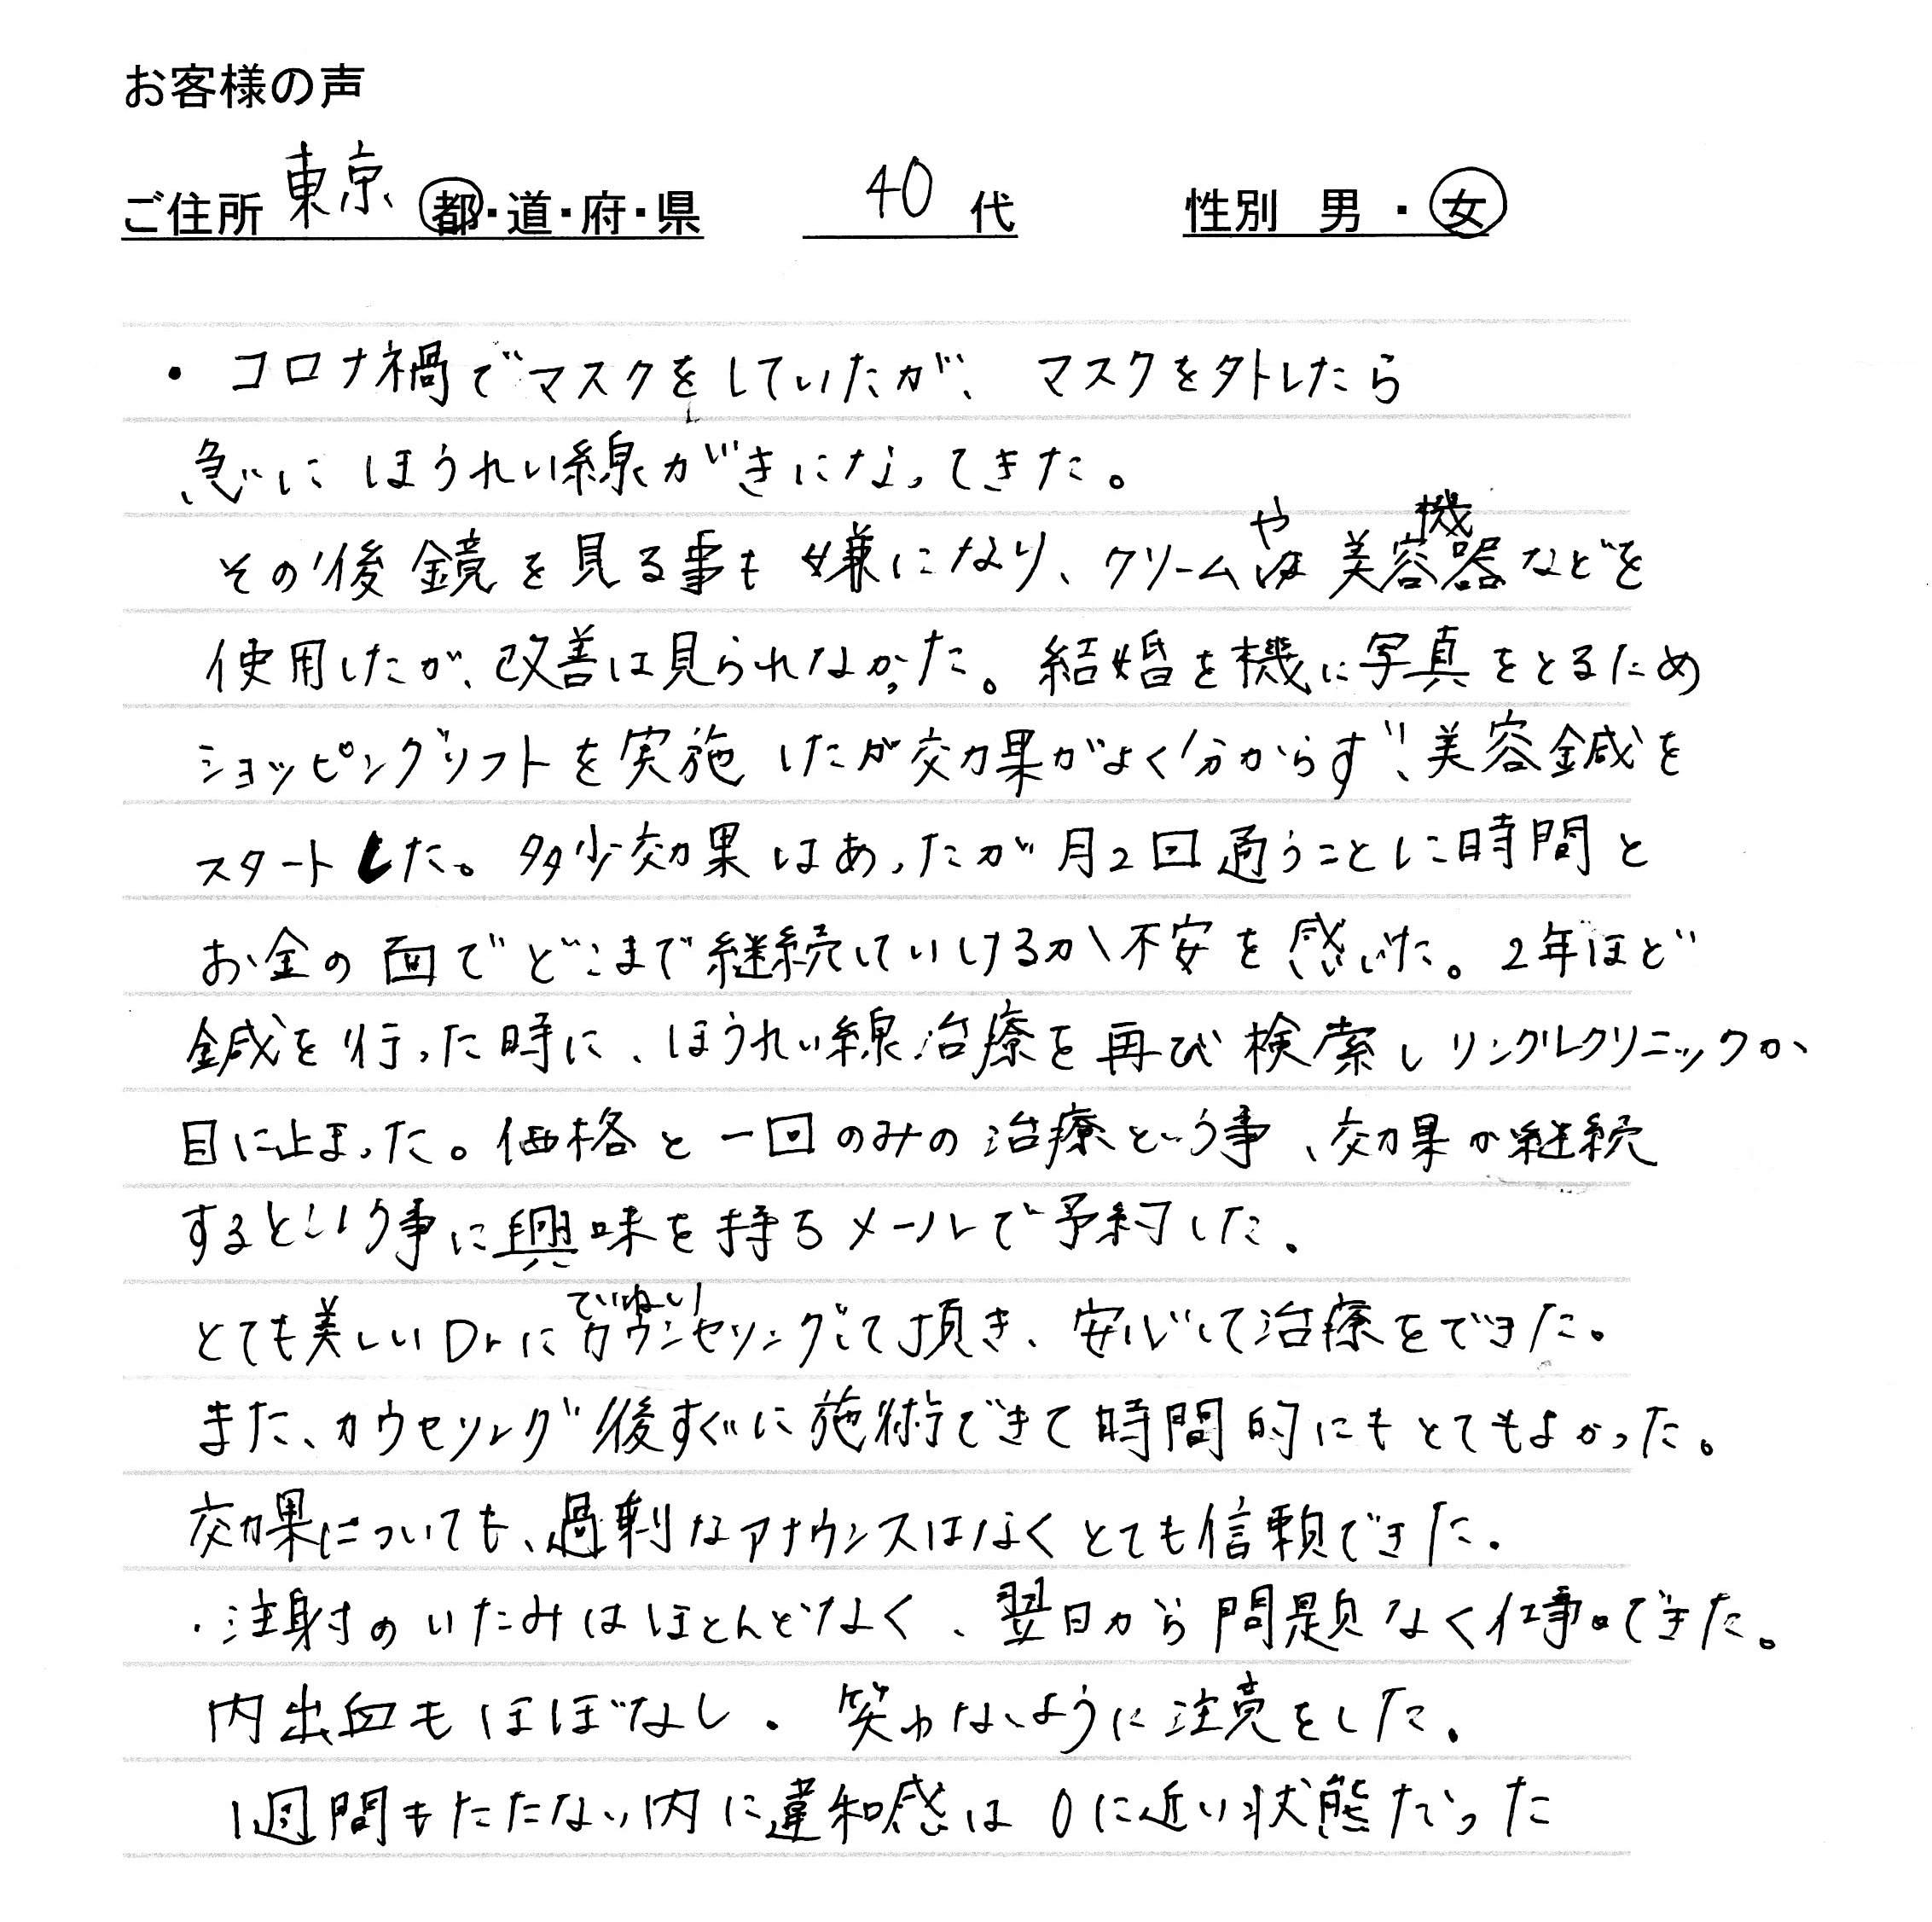 お客様の声
ご住所 東京 都・道・府・県 40 代 性別 男・女
・コロナ禍でマスクをしていたが、マスクを外したら
急にほうれい線がきになってきた。
その後鏡を見る事も嫌になり、クリームや美容機器などを
使用したが、改善は見られなかった。結婚を機に写真をとるため
ショッピングリフトを実施したが効果がよく分からず、美容鍼を
スタートした。多少効果はあったが月2回通うことに時間と
お金の面でどこまで継続していけるか不安を感じた。2年ほど
鍼を行った時に、ほうれい線治療を再び検索しリンクルクリニックが
目に止まった。価格と一回のみの治療という事、効果が継続
するという事に興味を持ちメールで予約した。
とても美しいDrにていねいカウンセリングして頂き、安心して治療をできた。
また、カウセリング後すぐに施術できて時間的にもとてもよかった。
効果についても、過剰なアナウンスはなくとても信頼できた。
・注射のいたみはほとんどなく、翌日から問題なく仕事できた。
内出血もほぼなし。笑わないように注意をした。
1週間もたたない内に違和感は0に近い状態だった